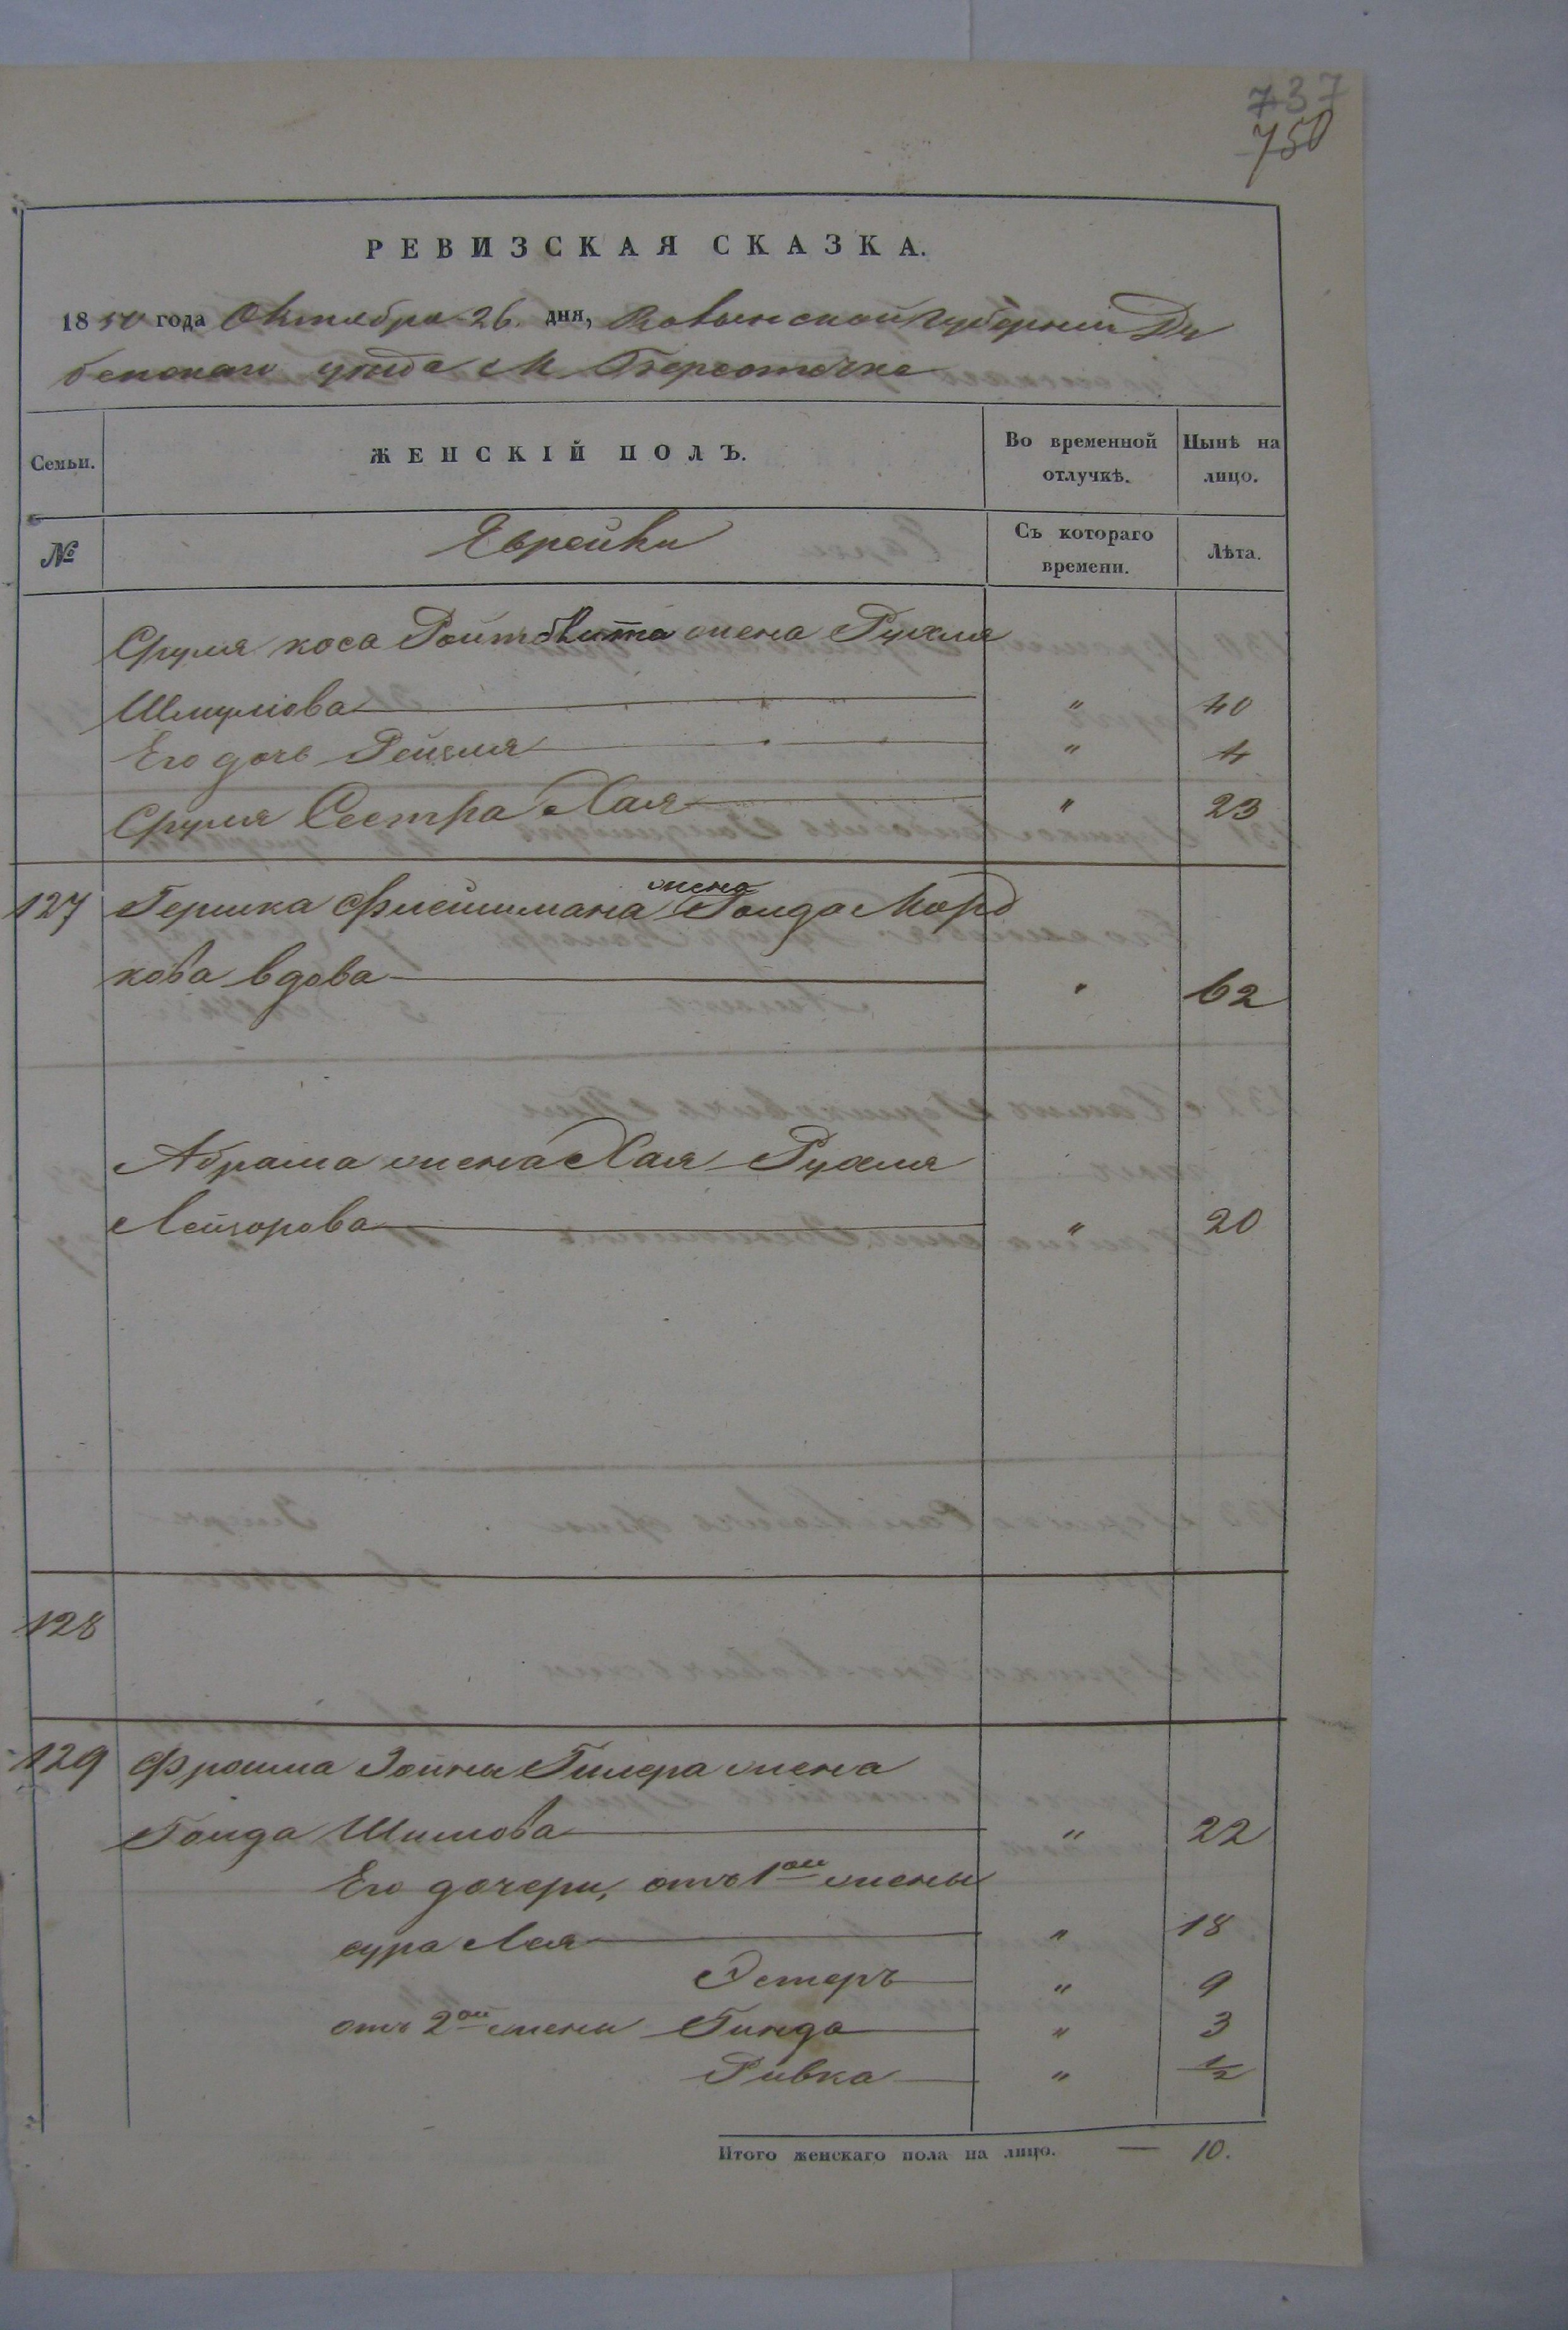 737
750
РЕВИЗСКАЯ СКАЗКА.
1850 года Октября 26. дня, Волынской Губернии Ду
бенскаго уезда М Берестечка
Семьи.
ЖЕНСКІЙ ПОЛЪ.
Во временной отлучкѣ.
Нынѣ на лицо.
№
Еврейки
Съ котораго времени.
Лѣта.
Сруля коса жена Рухля
Шмулова " 40
Его дочь Рейзля " 4
Сруля Сестра Хая " 23
127 Гершка Флейшмана жена ГолдаМорд
кова вдова " 62
Абрама жена Хая Рухля
Лейзорова " 20
128
129 Фроима Зойны Гилера жена
Голда Шимова " 22
Его дочери, отъ 1ой жены
сура Лея " 18
Эстеръ " 9
отъ 2ой жены Гинда " 3
Ривка " 1/2
Итого женскаго пола на лицо. — 10.